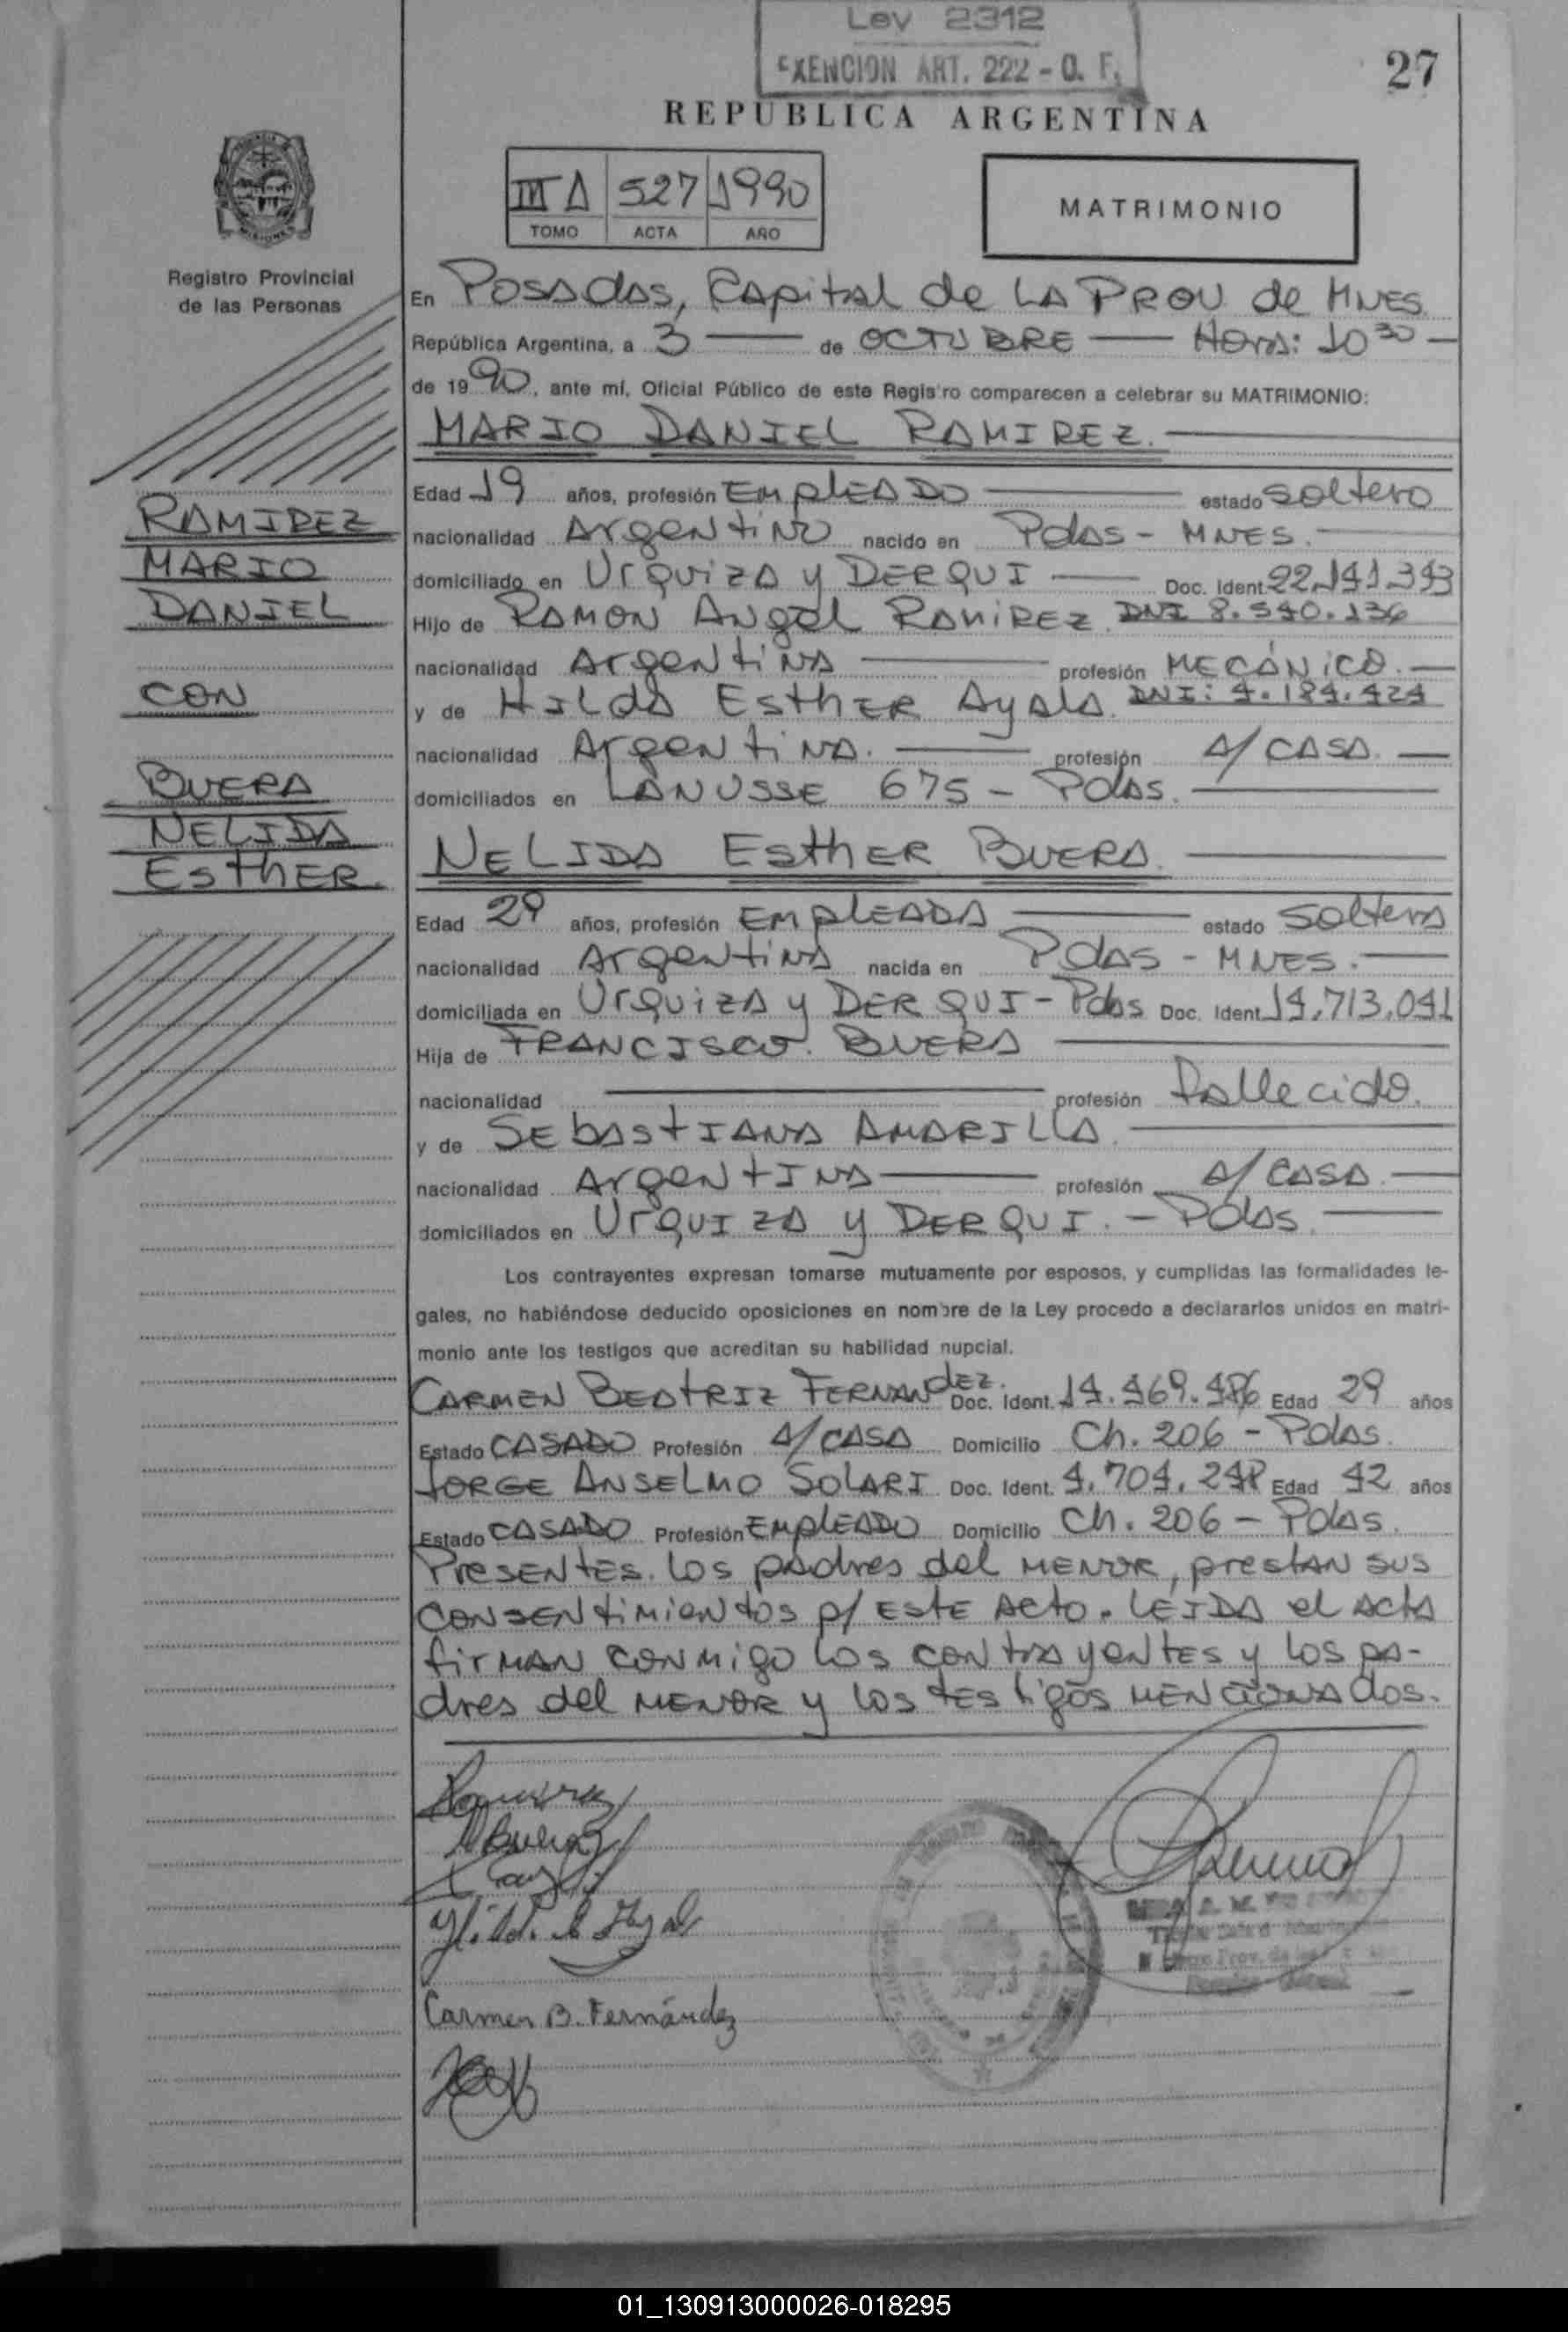 Ley 2312
EXENCION ART. 222 - O. F.
27
REPUBLICA ARGENTINA
III A 527 1990
TOMO ACTA AÑO
MATRIMONIO
Registro Provincial
de las Personas
En Posadas, Capital de LA PROV. de MNES
República Argentina, a 3 de OCTUBRE Hora: 10 30
de 19 90, ante mí, Oficial Público de este Registro comparecen a celebrar su MATRIMONIO:
MARIO DANIEL RAMIREZ.
Edad 19 años, profesión EMPLEADO estado soltero
nacionalidad Argentino nacido en Pdas - MNES.
domiciliado en Urquiza y DERQUI Doc. Ident. 22.141.393
Hijo de RAMON Angel RAMIREZ. DNI 8.540.136
nacionalidad Argentina profesión MECÁNICO.
y de HILDA ESTHER Ayala. DNI: 4.184.424
nacionalidad Argentina. profesión A/ CASA.
domiciliados en LANUSSE 675 - Pdas.
RAMIREZ
MARIO
DANIEL
CON
BUERA
NELIDA
ESTHER.
NELIDA ESTHER BUERA.
Edad 29 años, profesión EMPLEADA estado soltera
nacionalidad Argentina nacida en Pdas - MNES.
domiciliada en Urquiza y DERQUI - Pdas Doc. Ident. 14.713.041
Hija de FRANCISCO. BUERA
nacionalidad profesión Fallecido.
y de SEBASTIANA AMARILLA.
nacionalidad ArgenTINA profesión A/ CASA.
domiciliados en UrQUIZA y DERQUI. - Pdas.
Los contrayentes expresan tomarse mutuamente por esposos, y cumplidas las formalidades le-
gales, no habiéndose deducido oposiciones en nombre de la Ley procedo a declararlos unidos en matri-
monio ante los testigos que acreditan su habilidad nupcial.
CARMEN BEATRIZ FERNANDEZ. Doc. Ident. 14.469.486 Edad 29 años
Estado CASADO Profesión A/ CASA Domicilio Ch. 206 - Pdas.
JORGE ANSELMO SOLARI Doc. Ident. 4.704.248 Edad 42 años
Estado CASADO Profesión EMPLEADO Domicilio Ch. 206 - Pdas.
PresENtES. los padres del MENOR, prestAN sus
CONSENtimientos p/ EstE Acto. LEIDA el Acta
firMAN CONMigo los contrayentes y los pa-
dres del MENOR y los testigos MENCIONAdos.
Ramirez
NBuera
Carmen B. Fernández
01_130913000026-018295